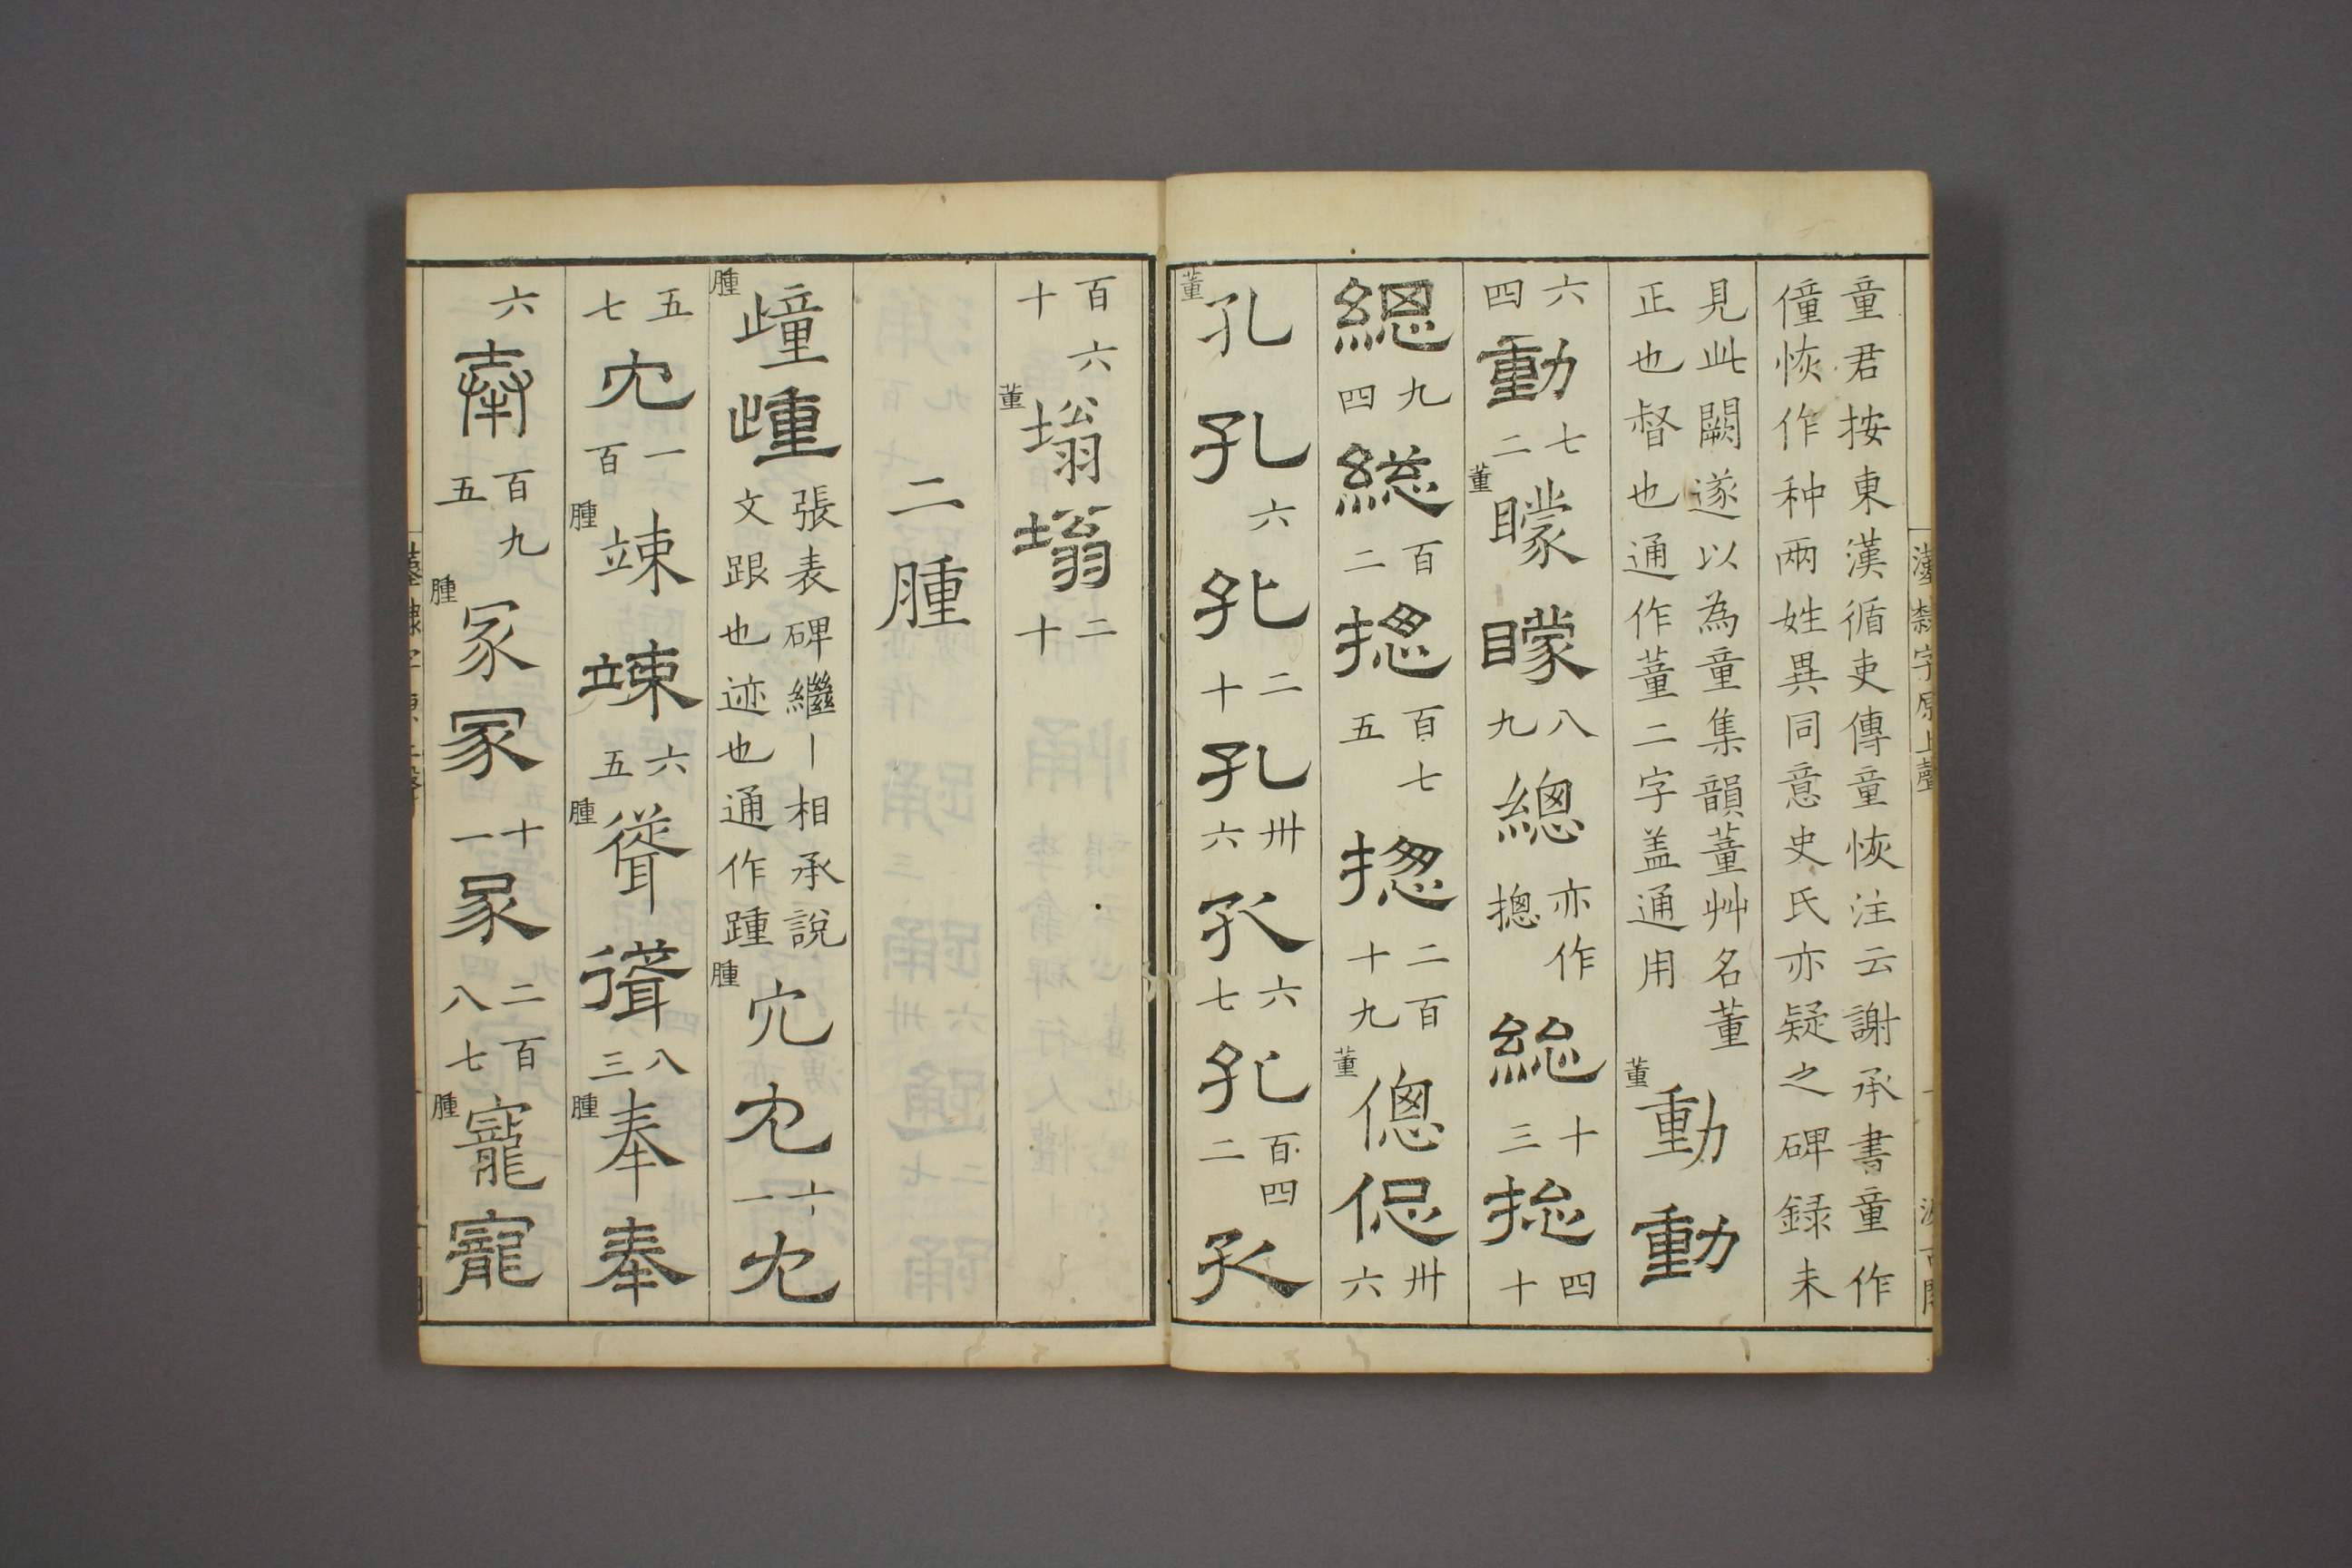 漢隸字原上聲
童君按東漢循吏傳童恢注云謝承書童作
僮恢作种兩姓異同意史氏亦疑之碑録未
見此闕遂以為童集韻蕫艸名董
正也督也通作蕫二字盖通用
董 動 動
六四 動 七二 董 矇 矇 八九 總 亦作摠 総 十三 捴 四十
緫 九四 総 百二 揔 百七五 揔 二百十九 董 傯 偬 卅六
董 孔 孔 六 孔 二十 孔 卅六 孔 六七 孔 百四二 孔
百六十 董 塕 塕 二十
二腫
腫 歱 歱
張表碑繼丨相承說
文跟也迹也通作踵
腫 宂 冗 六一 冗
五七 冗 一百 腫 竦 竦 六五 腫 聳 聳 八三 腫 奉 奉
六 奉 百九五 腫 冢 冢 十一 冢 二百八七 腫 寵 寵